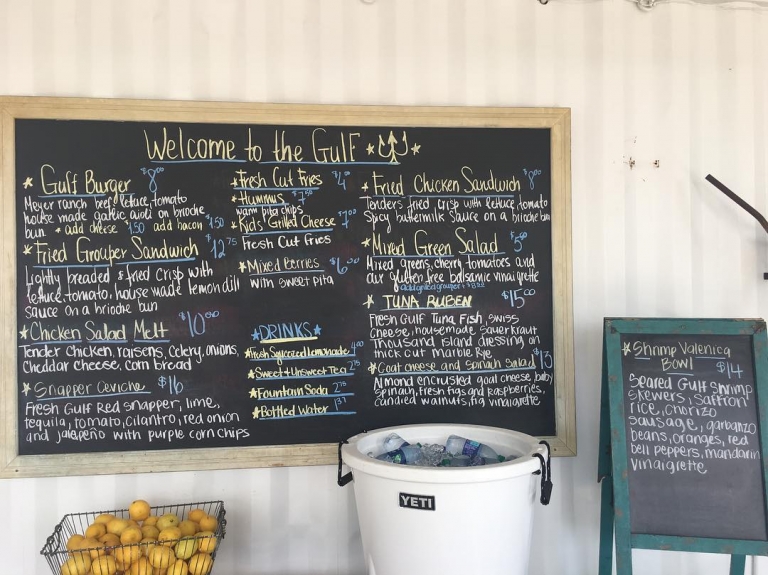 Welcome to the Gulf
Gulf Burger $8.00
Meyer ranch beef, lettuce, tomato
house made garlic aioli on brioche
bun + add cheese $1.50 add bacon $1.50
Fried Grouper Sandwich $12.75
Lightly breaded & fried crisp with
lettuce, tomato, house made lemon dill
sauce on a brioche bun
Chicken Salad Melt $10.00
Tender chicken, raisens, celery, onions,
cheddar cheese, corn bread
Snapper Ceviche $16
Fresh Gulf Red snapper, lime,
tequila, tomato, cilantro, red onion
and jalapeño with purple corn chips
Fresh Cut Fries $4.00
Hummus $7.50
warm pita chips
Kids' Grilled Cheese 7.00
Fresh Cut Fries
Mixed Berries $6.00
with sweet pita
DRINKS
Fresh Squeezed Lemonade 4.00
Sweet & Unsweet Tea 2.75
Fountain Soda 2.75
Bottled Water
Fried Chicken Sandwich $8.00
Tenders fried crisp with lettuce, tomato
Spicy buttermilk sauce on a brioche bun
Mixed Green Salad $5.00
Mixed greens, cherry tomatoes and
our gluten free balsmic vinaigrette
add grilled grouper +
TUNA RUBEN $15.00
Fresh Gulf Tuna Fish, swiss
cheese, housemade sauerkraut
Thousand island dressing on
thick cut marble Rye
Goat cheese and Spinach Salad $13
Almond encrusted goat cheese, baby
spinach, fresh figs and raspberries,
candied walnuts, fig vinaigrette
YETI
Shrimp Valenica
Bowl $14
Seared Gulf Shrimp
skewers, Saffron
rice, chorizo
sausage, garbanzo
beans, oranges, red
bell peppers, mandarin
vinaigrette